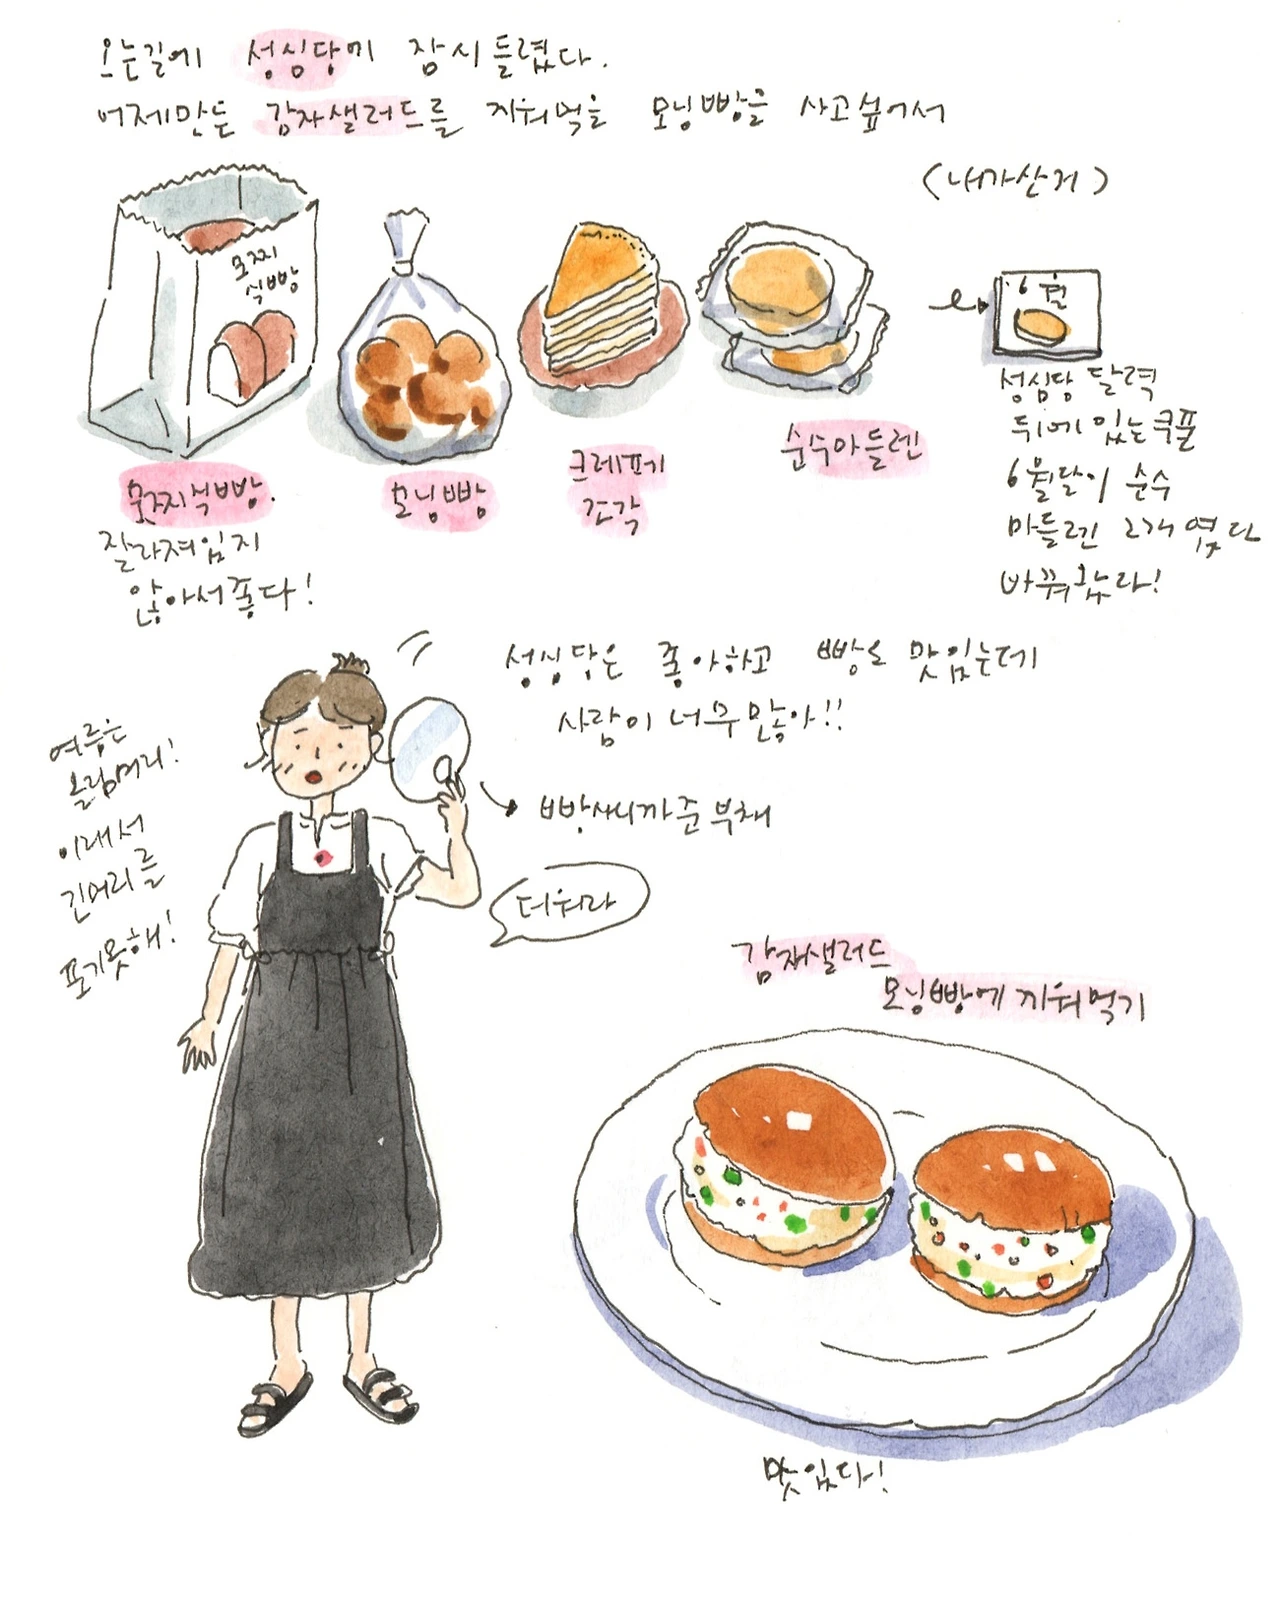 오는길에 성심당에 잠시 들렸다.
어제만든 감자샐러드를 끼워먹을 모닝빵을 사고싶어서
(내가산거)
모찌
식빵
6월
모찌식빵.
잘라져있지
않아서좋다!
모닝빵
크레페
조각
순수마들렌
성심당 달력
뒤에 있는쿠폰
6월달이 순수
마들렌 2개 였다
바꿔왔노라!
성심당은 좋아하고 빵은 맛있는데
사람이 너무 많아!!
빵사니까준 부채
여름은
올림머리!
이래서
긴머리를
포기못해!
더워라
감자샐러드
모닝빵에 끼워먹기
맛있다!